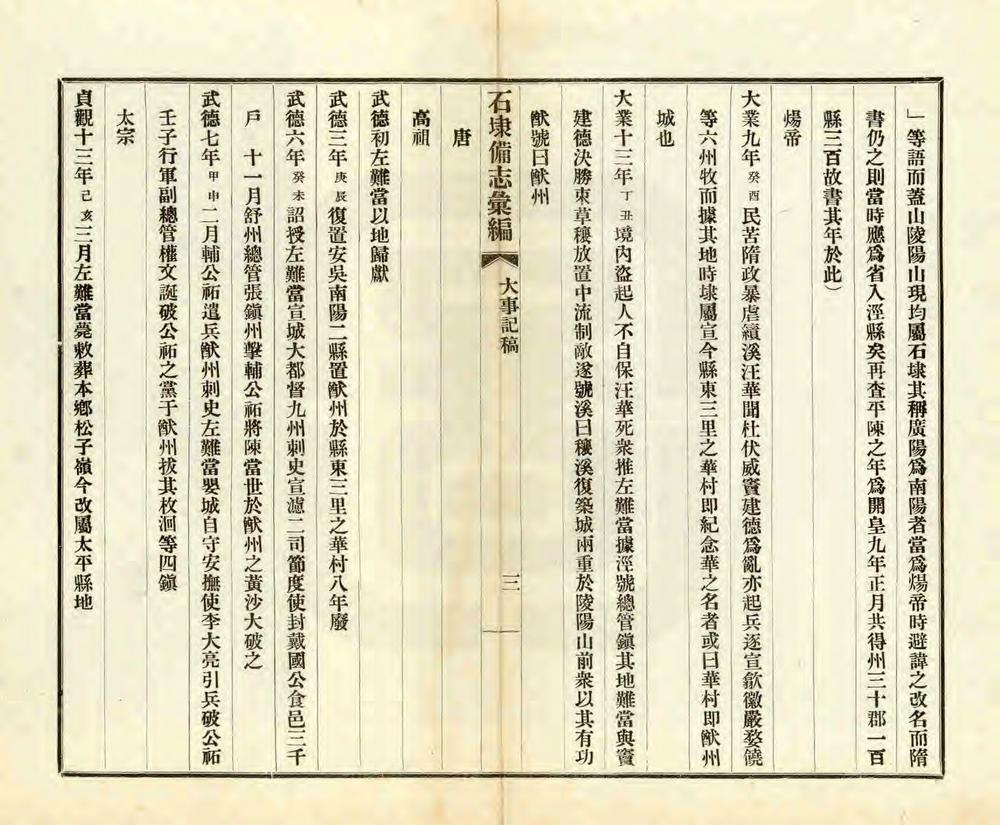 」等語而蓋山陵陽山現均屬石埭其稱廣陽爲南陽者當爲煬帝時避諱之改名而隋
書仍之則當時應爲省入涇縣矣再查平陳之年爲開皇九年正月共得州三十郡一百
縣三百故書其年於此）
煬帝
大業九年癸酉民苦隋政暴虐績溪汪華聞杜伏威竇建德爲亂亦起兵逐宣歙徽嚴婺饒
等六州牧而據其地時埭屬宣今縣東三里之華村即紀念華之名者或曰華村即猷州
城也
大業十三年丁丑境內盜起人不自保汪華死衆推左難當據涇號總管鎭其地難當與竇
建德決勝束草穰放置中流制敵遂號溪曰穰溪復築城兩重於陵陽山前衆以其有功
猷號曰猷州
石埭備志彙編
大事記稿
三
唐
高祖
武德初左難當以地歸獻
武德三年庚辰復置安吳南陽二縣置猷州於縣東三里之華村八年廢
武德六年癸未詔授左難當宣城大都督九州刺史宣濾二司節度使封戴國公食邑三千
戶　十一月舒州總管張鎭州擊輔公祏將陳當世於猷州之黃沙大破之
武德七年甲申二月輔公祏遣兵猷州刺史左難當嬰城自守安撫使李大亮引兵破公祏
壬子行軍副總管權文誕破公祏之黨于猷州拔其枚洄等四鎭
太宗
貞觀十三年己亥三月左難當薨敕葬本鄉松子嶺今改屬太平縣地